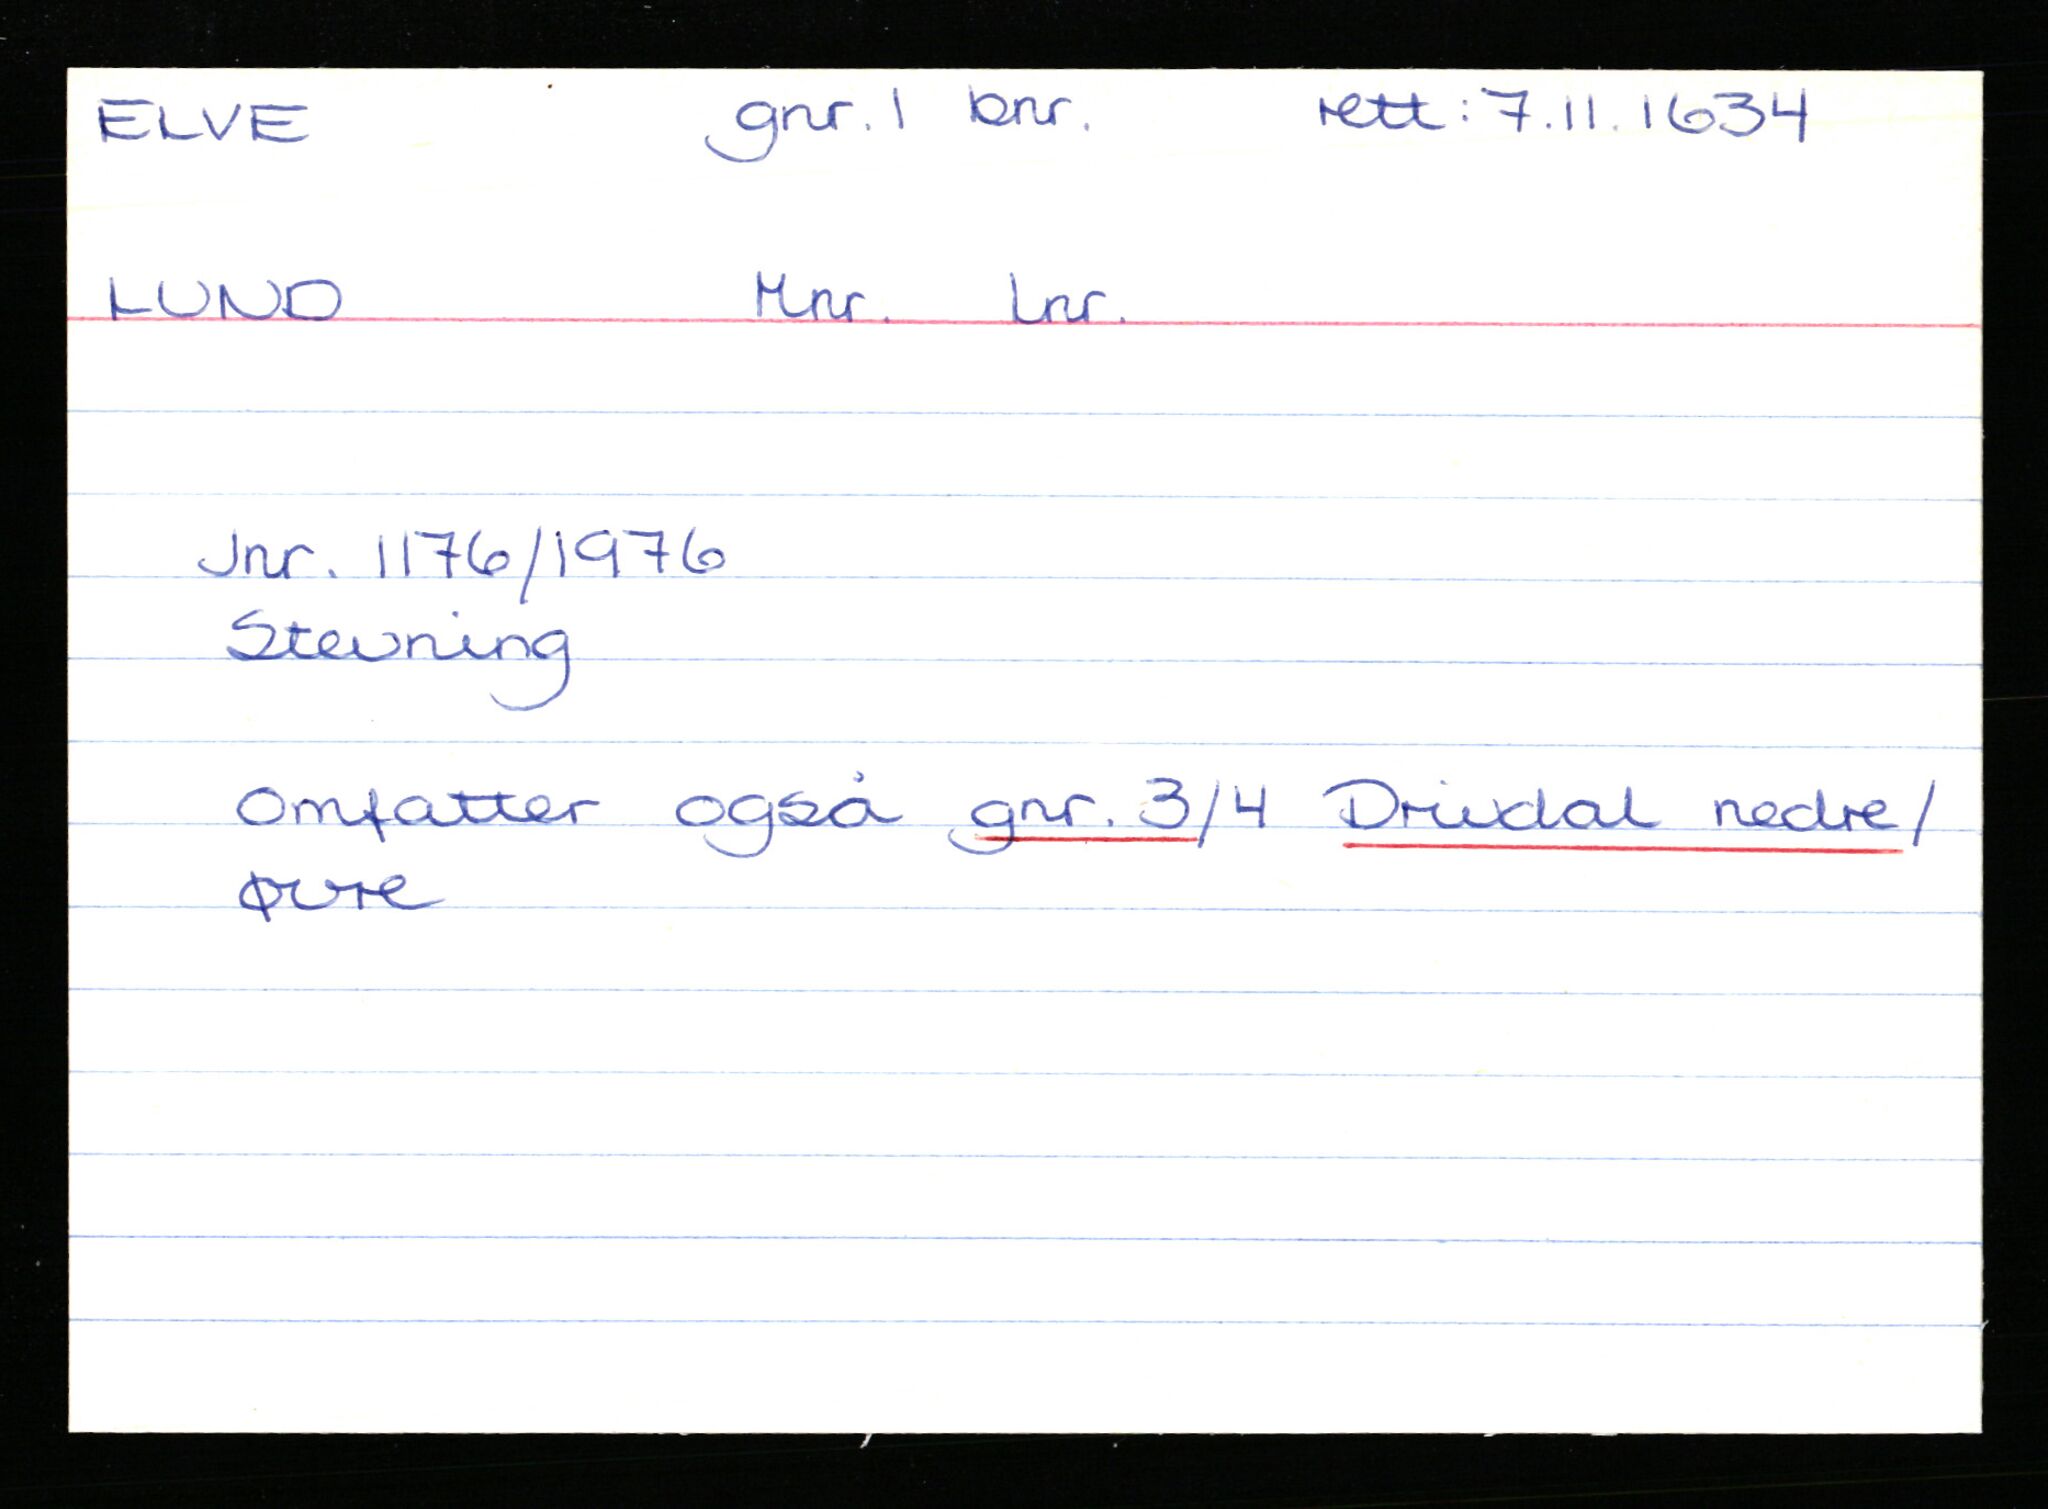 ELVE gnr. 1 bnr. rett: 7.11.1634
LUND Mnr. Lnr.
Jnr. 1176/1976
Stevning
Omfatter også gnr. 3/4 Drivdal nedre/
øvre